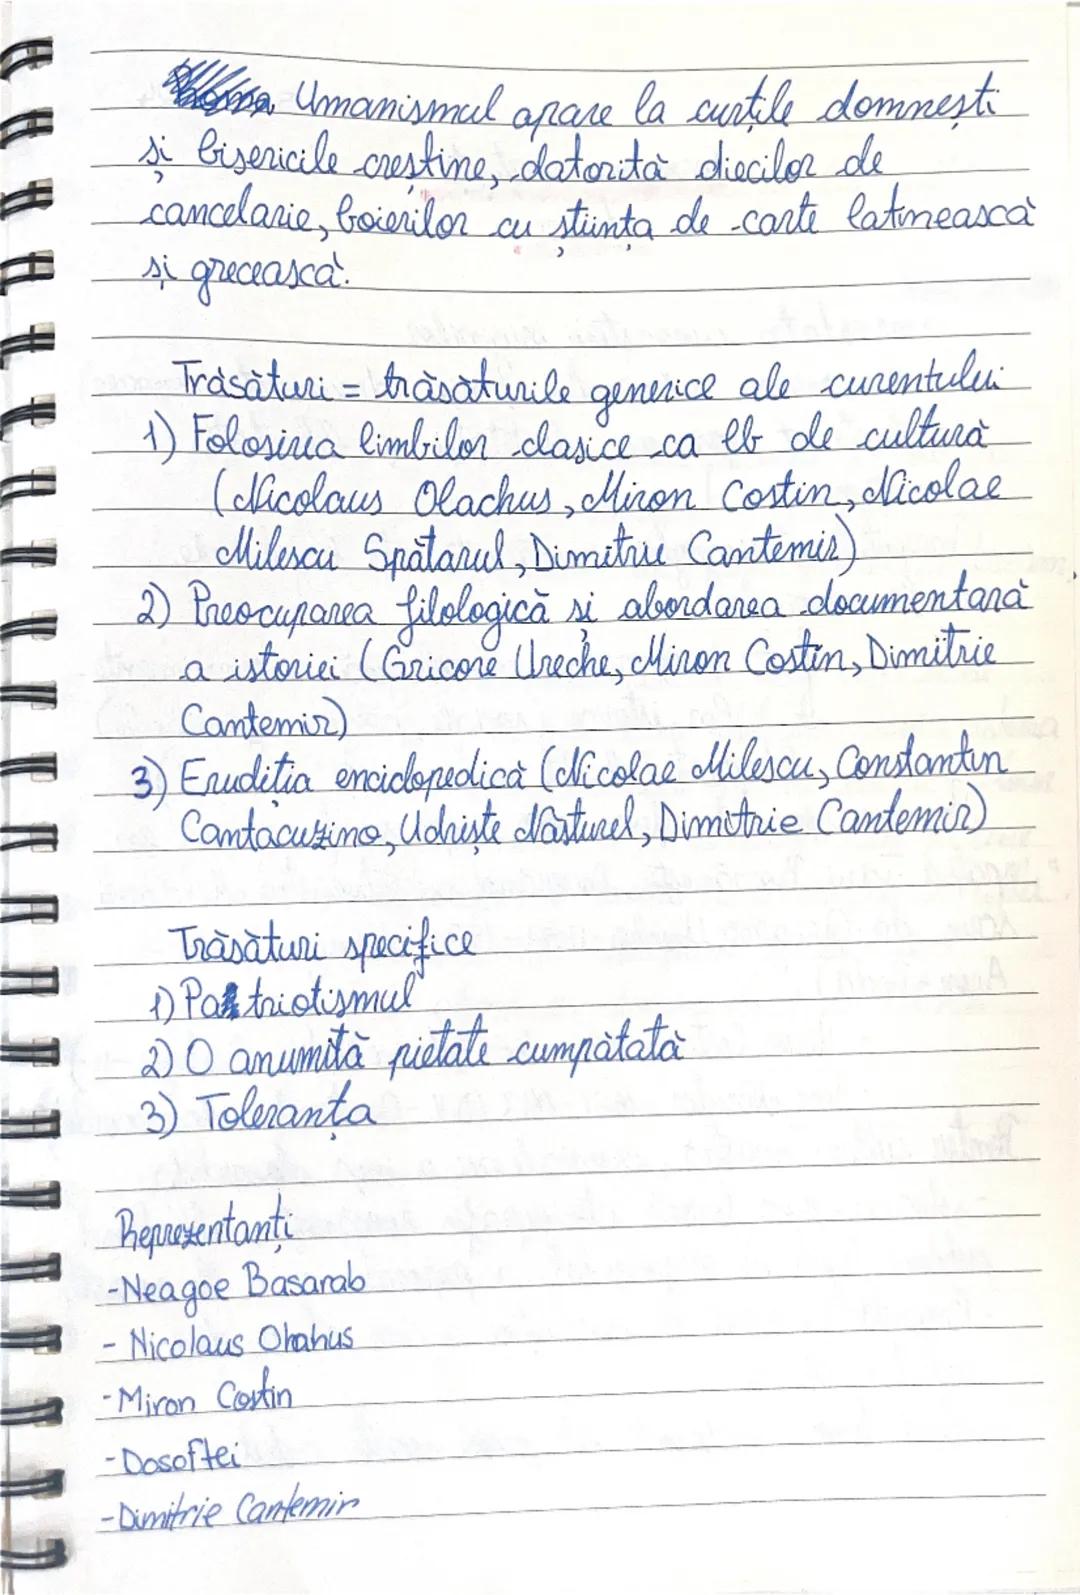 Umanismul apare la curțile domnești
și bisericile creștine, datorită diecilor de
cancelarie, boierilor cu știința de carte latinească
și grecească.
Trăsături = trăsăturile generice ale curentului
1) Folosirea limbilor clasice ca lb de cultură
(Nicolaus Olachus, Miron Costin, Nicolae
Milescu Spătarul, Dimitrie Cantemir)
2) Preocuparea filologică și abordarea documentară
a istoriei (Gricore Ureche, Miron Costin, Dimitrie
Cantemir)
3) Erudiția enciclopedică (Nicolae Milescu, Constantin
Cantacuzino, Udriște Năsturel, Dimitrie Cantemir)
Trăsături specifice
1) Patriotismul
2) O anumită pietate cumpătată
3) Toleranța
Reprezentanți
-Neagoe Basarab
- Nicolaus Olahus
-Miron Costin
-Dosoftei
-Dimitrie Cantemir